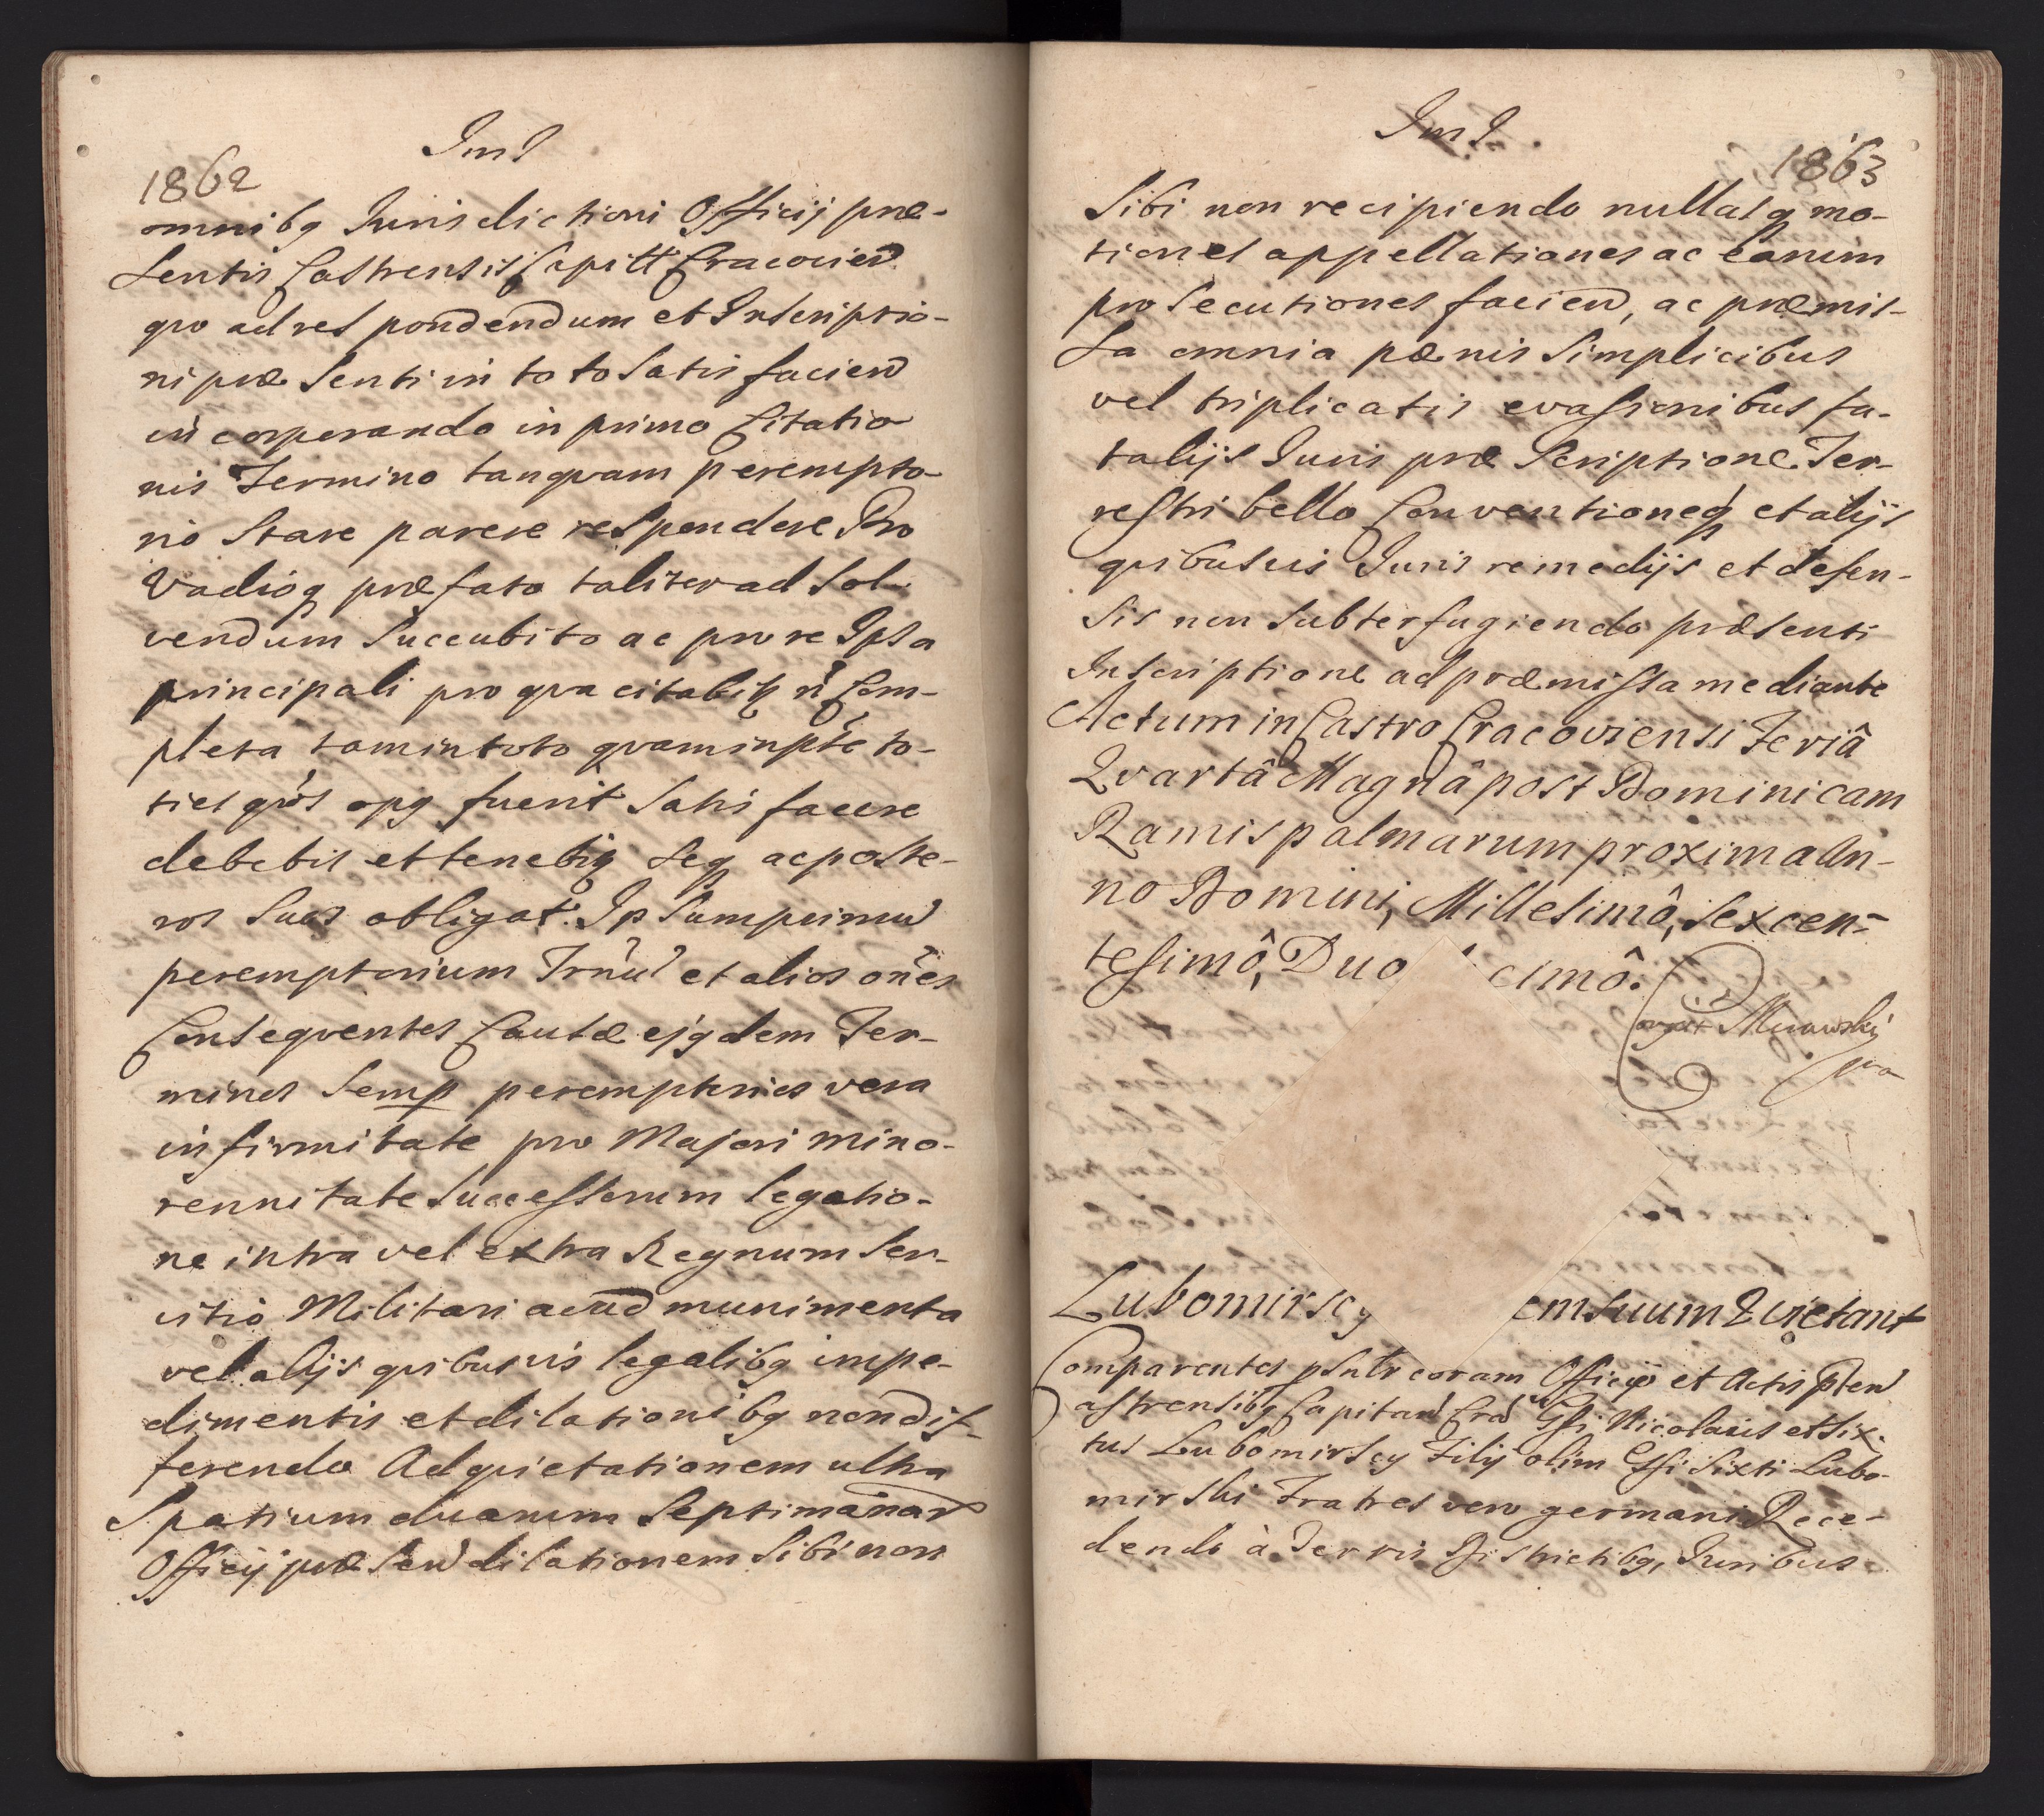 1862
omnibq Jurisdictioni Officij præ-
sentis Castrensis Capitt Cracovien
qvo ad respondendum et Inscriptio-
ni præsenti in toto satisfacien
in corporando in primo Citatio
nis Termino tanqvam perempto-
rio stare parere respondere Pro
Vadioq præfato taliter ad sol-
vendum succubito ac pro re Ipsa
principali pro qva citabitʒ n Com-
pleta tam in toto qvam in pte to-
ties qvos opq fuerit satisfacere
debebit et tenebitq seq ac poste-
ros suos obligat. Ipsum primu
peremptorium Trnu et alios oñes
Conseqventes Causæ ejqdem Ter-
minos semp peremptorios vera
infirmitate pro Majori mino-
rennitate successorum legatio-
ne intra vel extra Regnum ser-
vitio Militari ad munimenta
vel alijs qvibusvis legalibq impe-
dimentis et dilationibq non dif-
ferendo Ad qvietationem ultra
Spatium duarum Septimanar
Officij præsen dilationem sibi non
1863
Sibi non recipiendo nullasq mo-
tiones appellationes ac earum
prosecutiones facien, ac præmis-
sa omnia pænis simplicibus
vel triplicatis evasionibus fa-
talijs Juris præscriptione Ter-
restri bello Conventioneq et alijs
qvibusvis Juris remedijs et defen-
sis non subterfugiendo præsenti
Inscriptione ad præmissa mediante
Actum in Castro Cracoviensi Feriâ
Qvartâ Magnâ post Dominicam
Ramispalmarum proxima An-
no Domini, Millesimô, sexcen-
tesimô, Duo cimô.
Lubomirscy em suum Qvietant
Comparentes psnlr coram Officio et Actis Pten
Castrensibq Capitan Cra Gsi Nicolaus et Six-
tus Lubomirscy Filij olim Gsi Sixti Lubo-
mirski Fratres vero germani Rece-
dendo à Terris Districtibq, Juribus